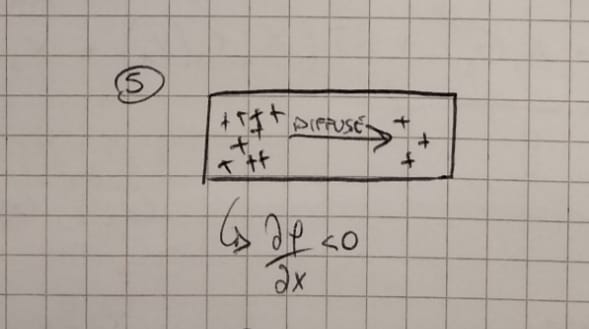 ⑤
+ + + + +
+
+ + +
DIFFUSE
+
+
+
↳ ∂p/∂x <0